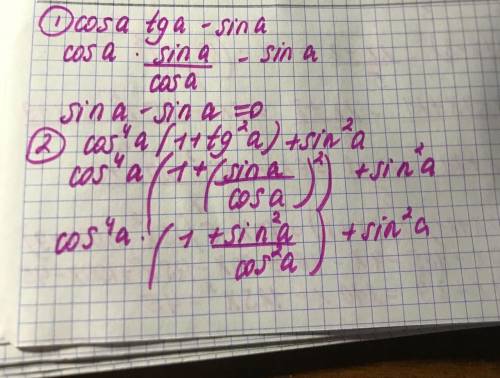 ① cosa tga - sina
cosa · sina/cosa - sina
sina - sina = 0
② cos⁴a (1 + tg²a) + sin²a
cos⁴a (1 + (sina/cosa)²) + sin²a
cos⁴a · (1 + sin²a/cos²a) + sin²a